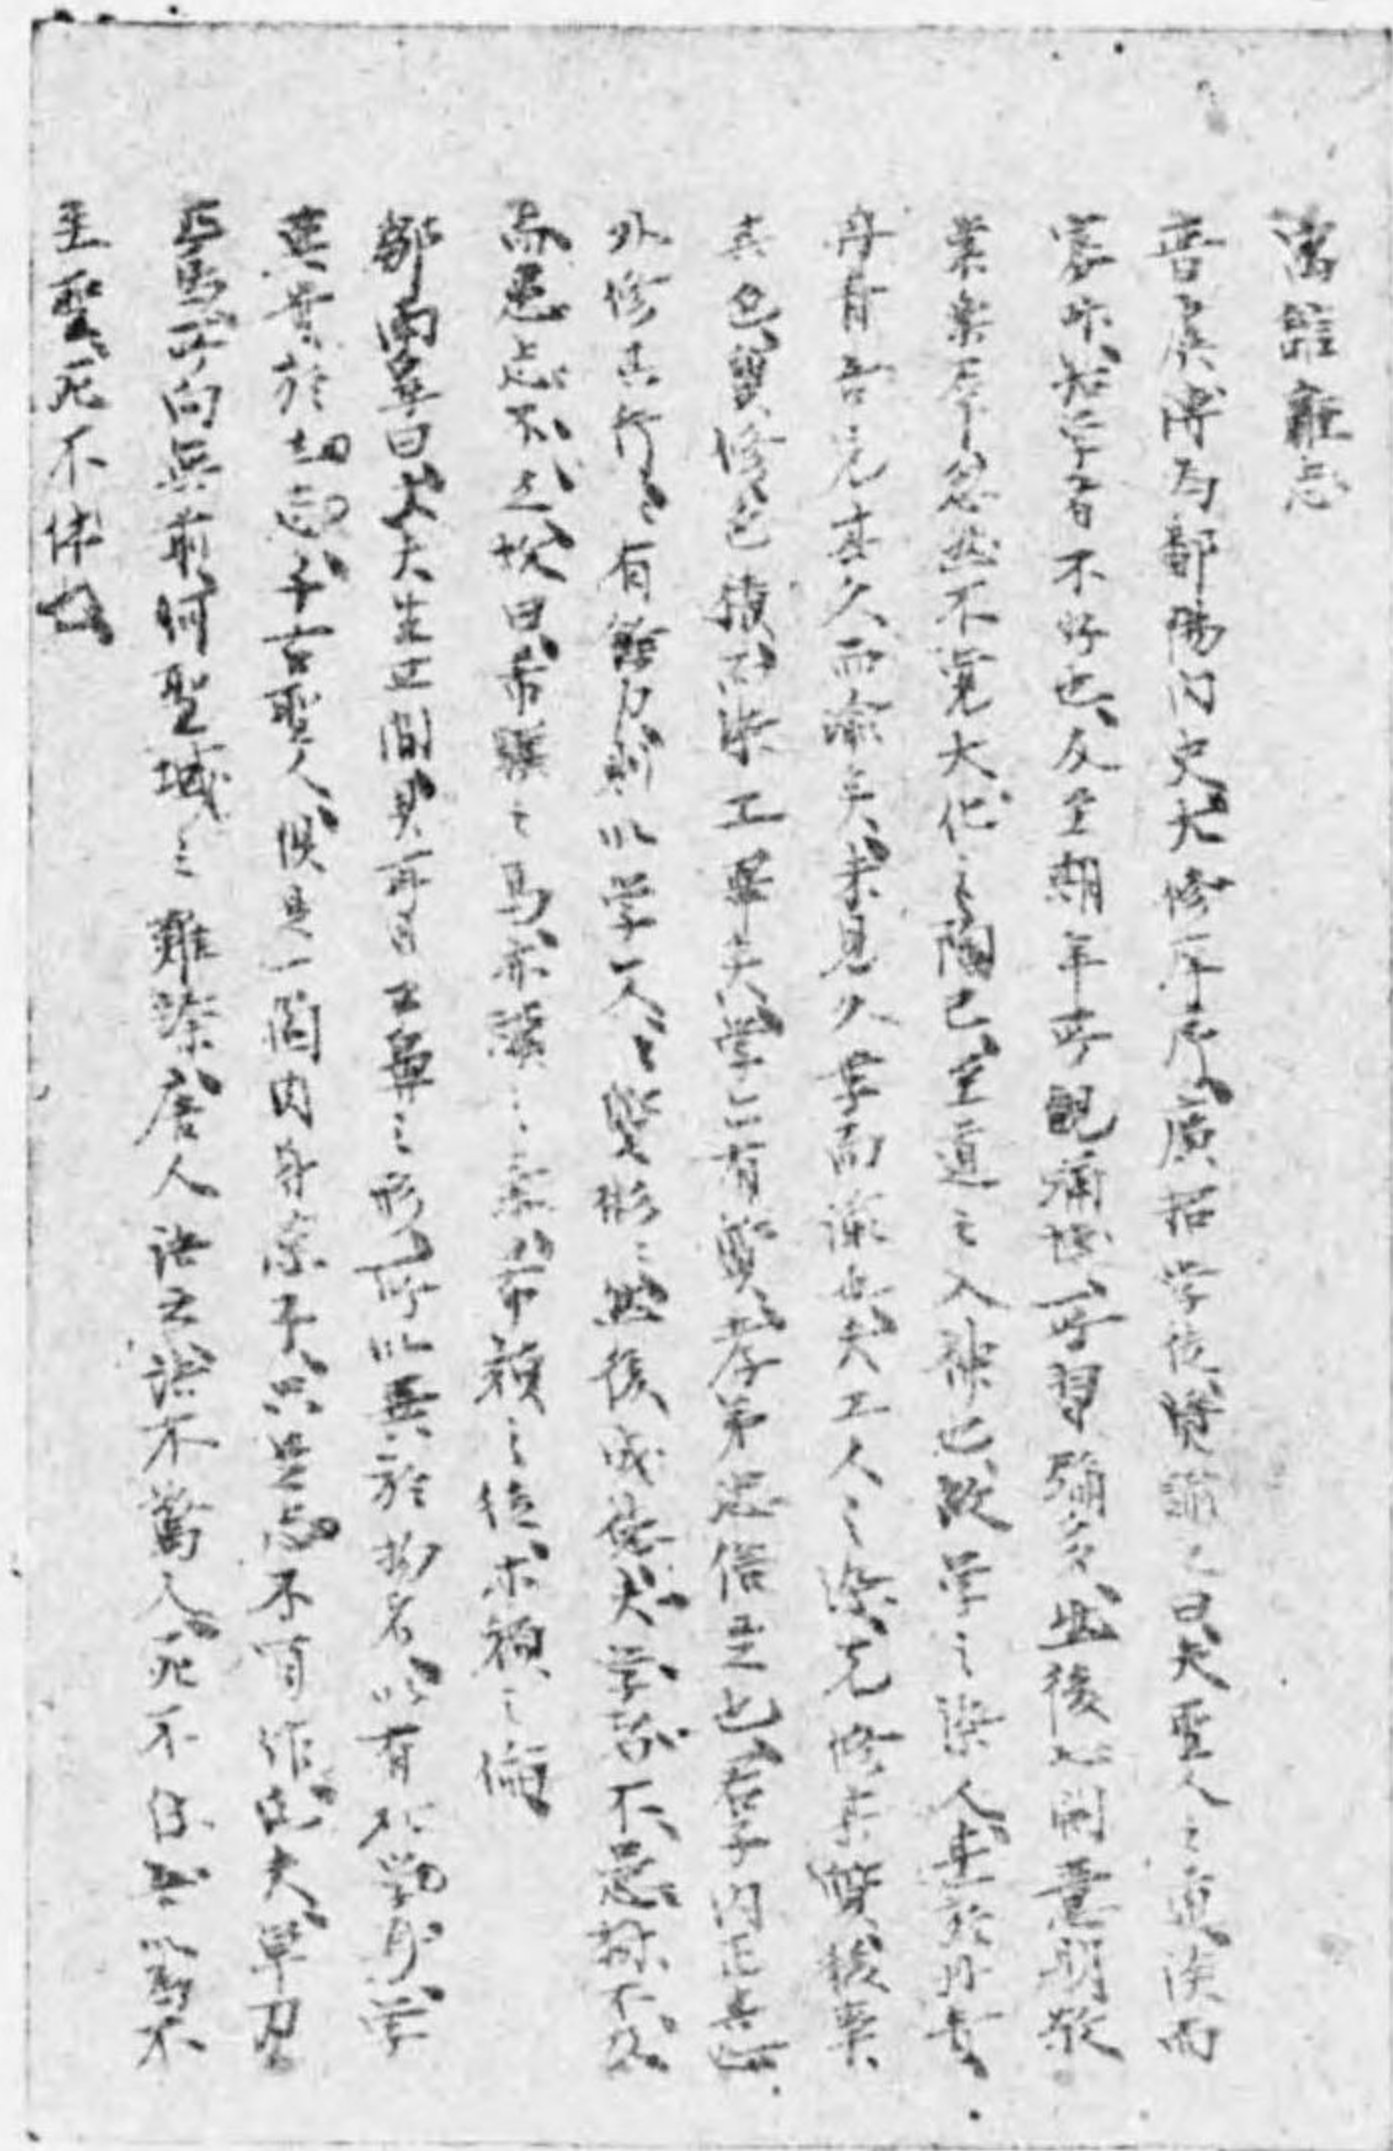 萬㽔雜志
晋虞溥爲鄱陽内史大修庠序廣招学徒奨諭之曰夫聖人之道淡而
寡味故学者不好也及至期年所観弥博所習弥多然後心開意朗敬
業楽群忽然不覚大化之陶己至道之入神也故学之染人甚於丹青
丹青吾見其久而渝矣未見久学而渝也夫工人之染先修其質後事
其色質修色積而染工畢矣学亦有質孝弟忠信是也君子内正其心
外修其行行有餘力則以学文文質彬彬然後成徳夫学者不患才不及
而患志不立故曰希驥之馬亦驥之乗希顔之徒亦顔之倫
鄒南皐曰丈夫生世間具耳目口鼻之形所以異於物者以有此学耳学
莫貴於志千古聖人倶是一箇肉身漢子只是志不肯作凡夫單刀
匹馬所向無前何聖域之難躋唐人詩云語不驚人死不休吾以為不
至聖死不休也